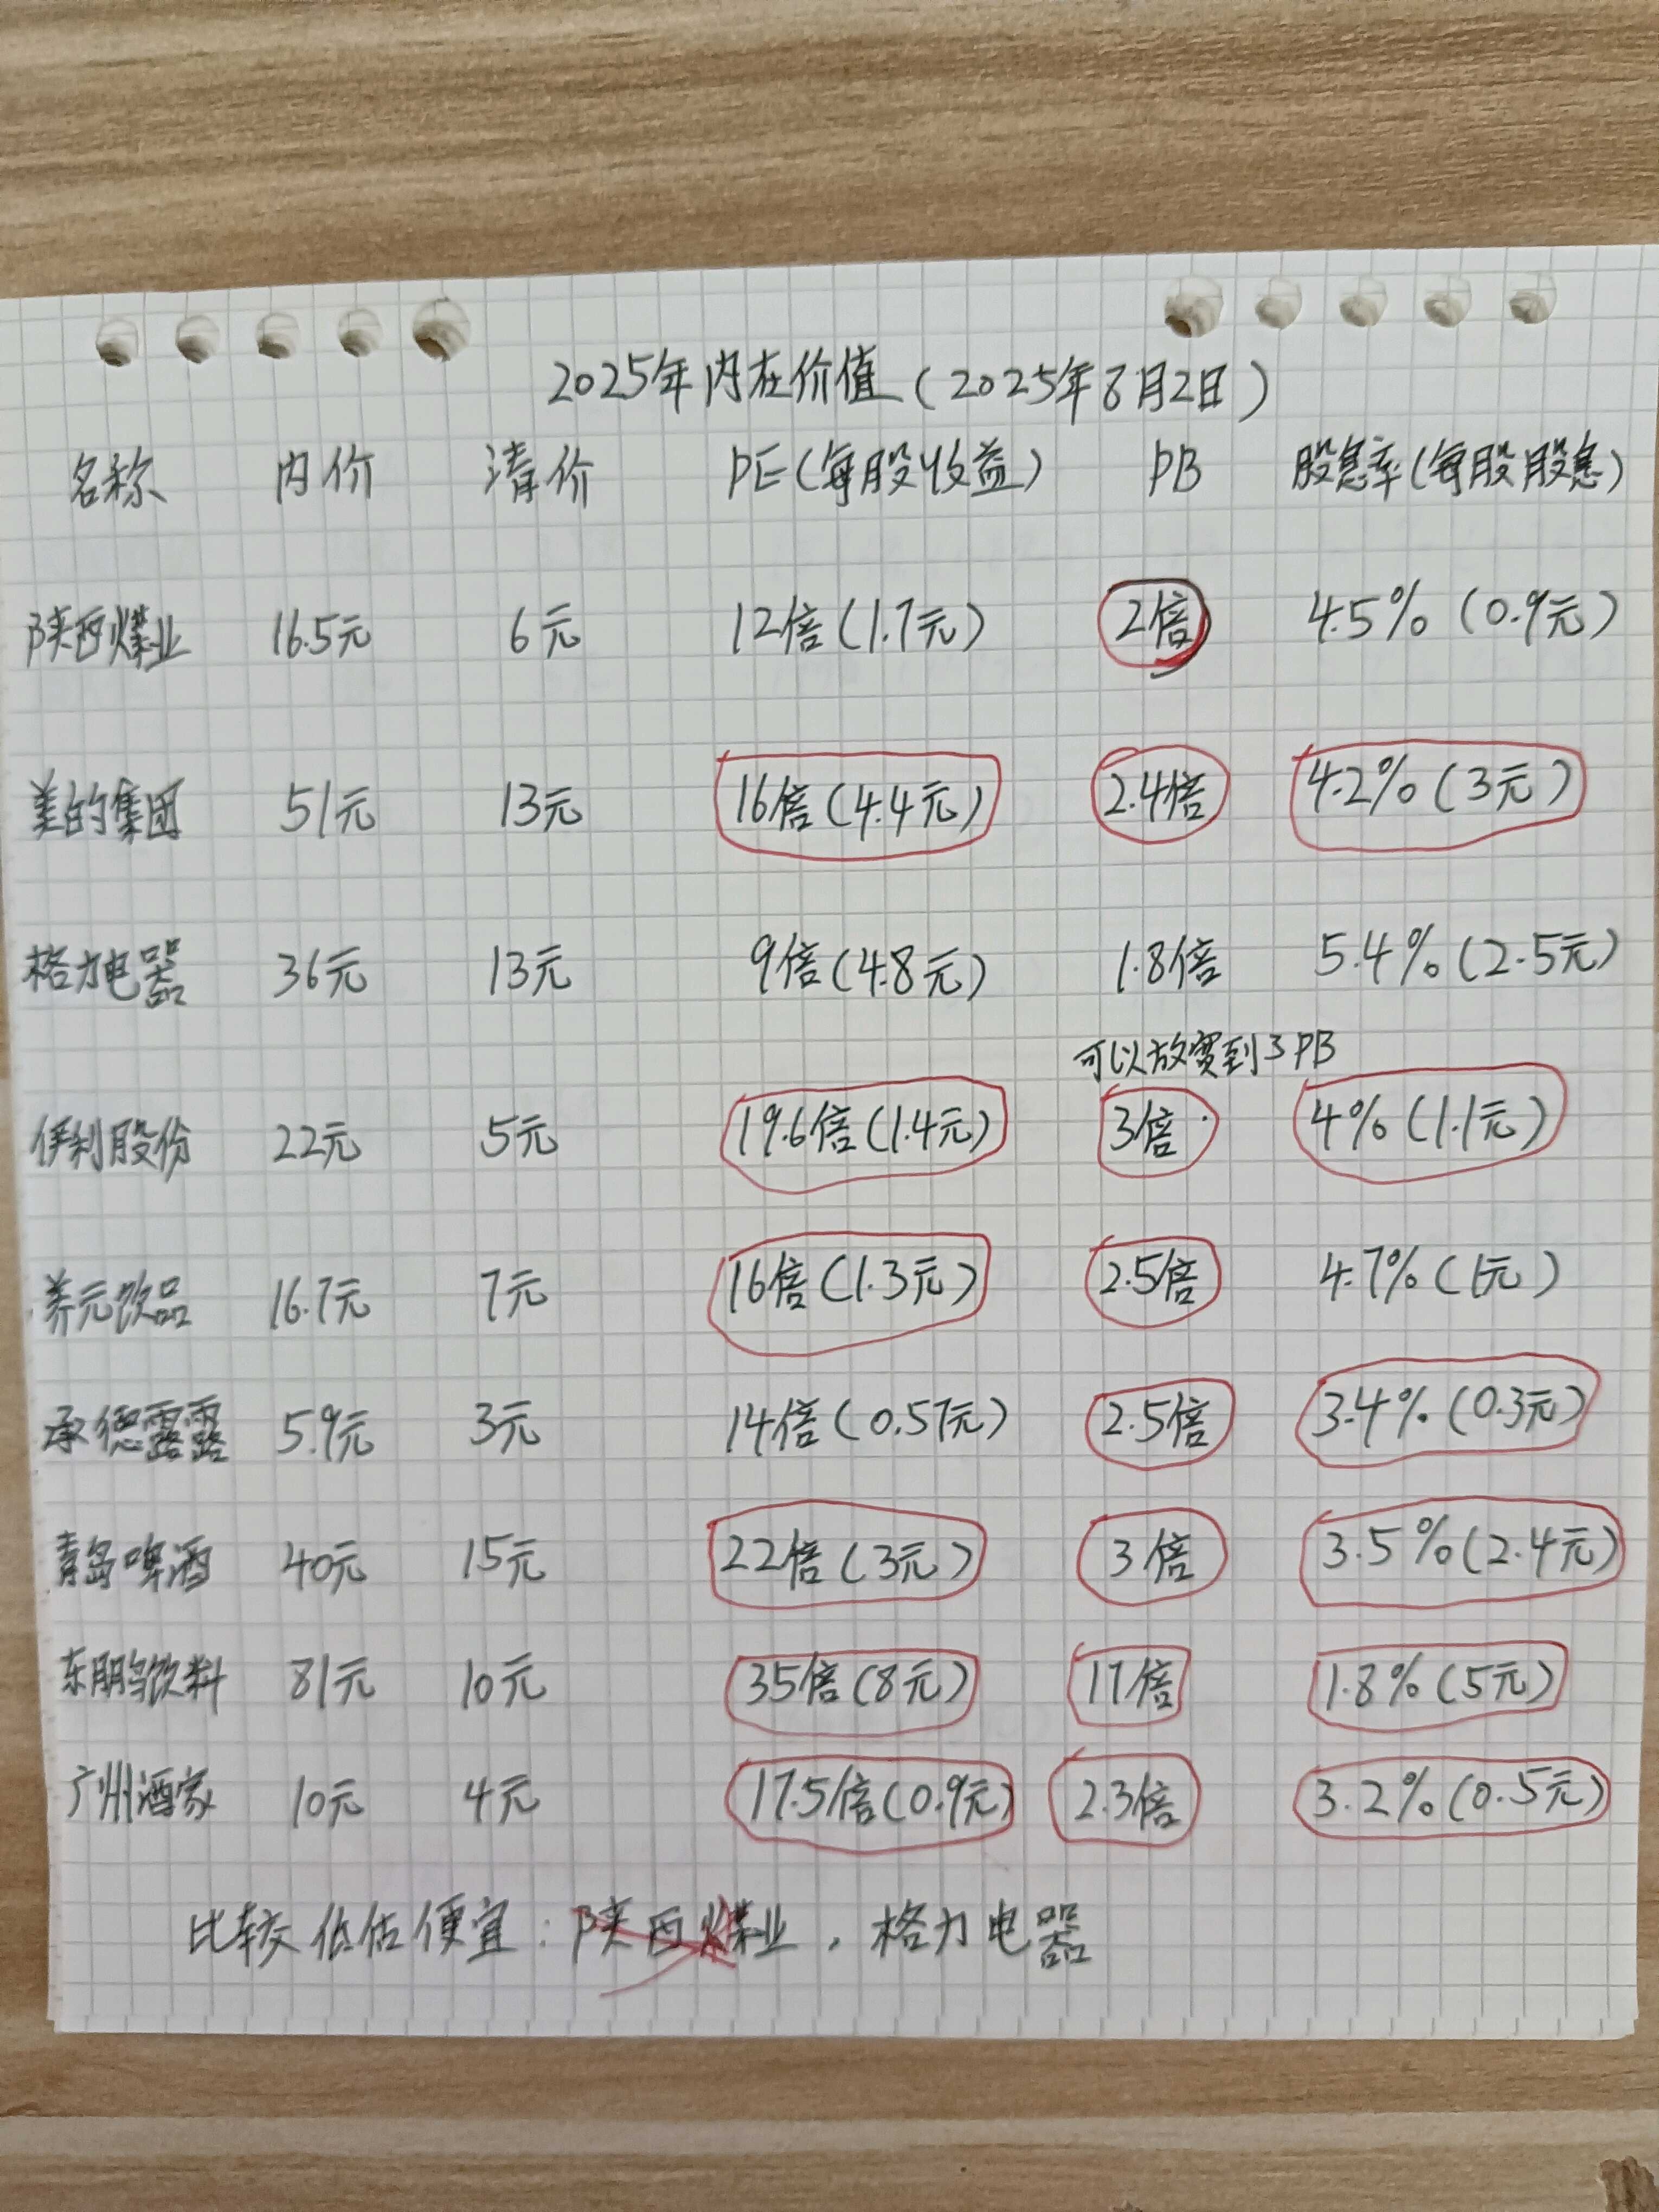 2025年内在价值(2025年8月2日)
名称 内价 清价 PE(每股收益) PB 股息率(每股股息)
陕西煤业 16.5元 6元 12倍(1.7元) 2倍 4.5%(0.9元)
美的集团 51元 13元 16倍(4.4元) 2.4倍 4.2%(3元)
格力电器 36元 13元 9倍(4.8元) 1.8倍 5.4%(2.5元)
可以放宽到3PB
伊利股份 22元 5元 19.6倍(1.4元) 3倍 4%(1.1元)
养元饮品 16.7元 7元 16倍(1.3元) 2.5倍 4.7%(1元)
承德露露 5.9元 3元 14倍(0.57元) 2.5倍 3.4%(0.3元)
青岛啤酒 40元 15元 22倍(3元) 3倍 3.5%(2.4元)
东鹏饮料 81元 10元 35倍(8元) 17倍 1.8%(5元)
广州酒家 10元 4元 17.5倍(0.9元) 2.3倍 3.2%(0.5元)
比较低估便宜:陕西煤业,格力电器